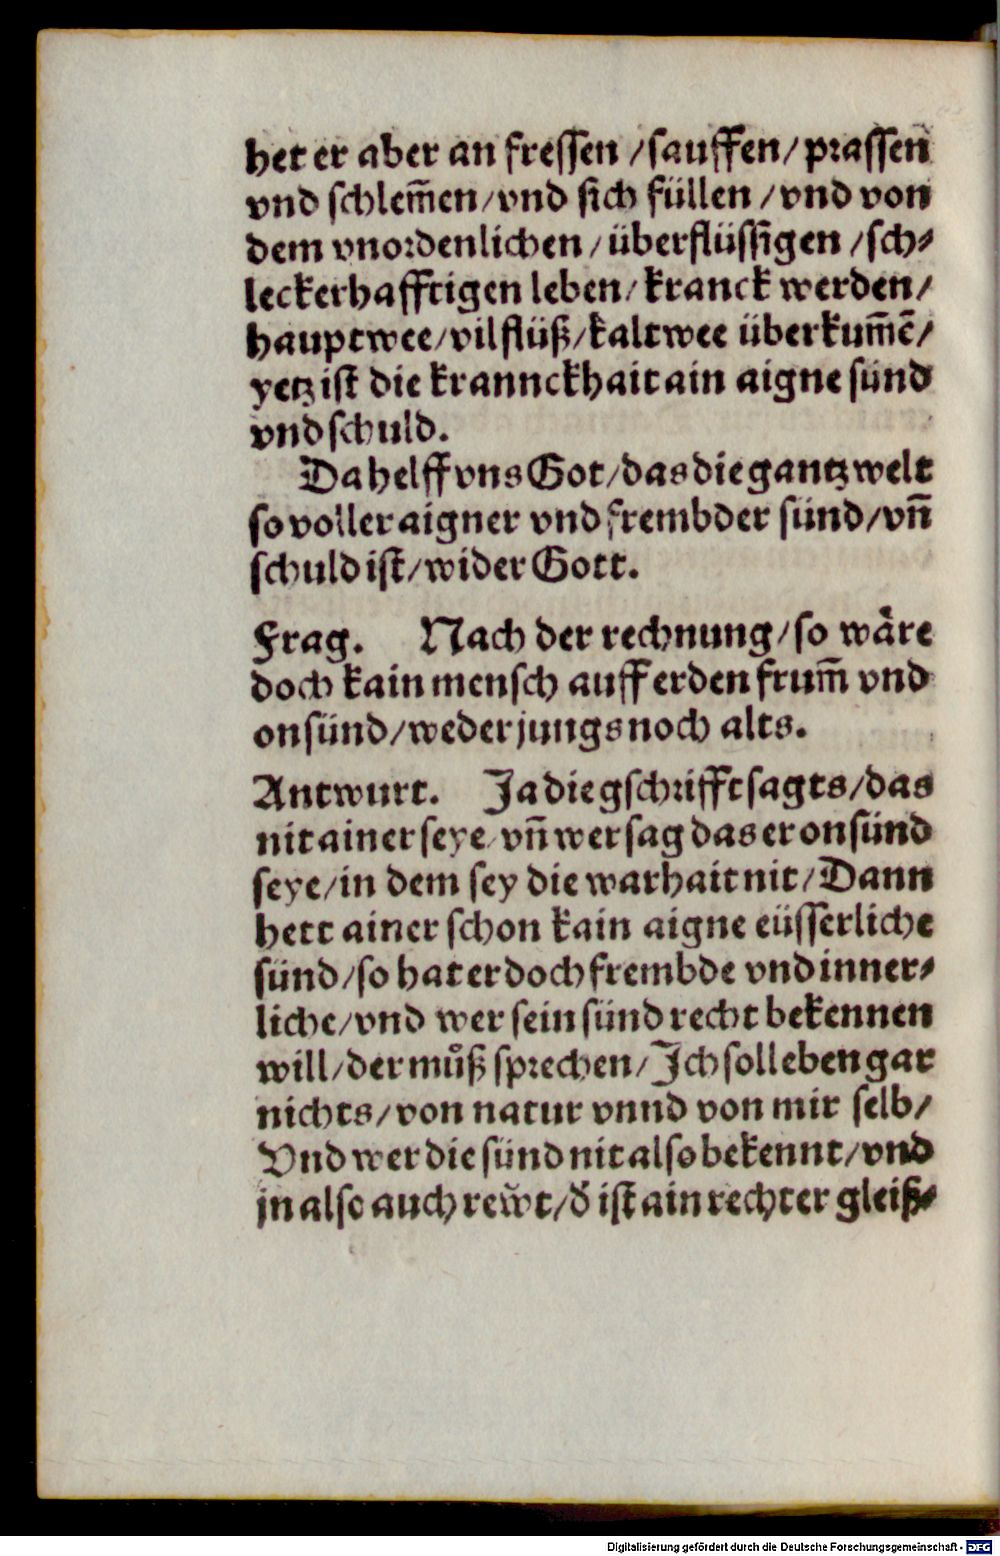 het er aber an fressen / sauffen / prassen
vnd schlem̃en / vnd sich füllen / vnd von
dem vnordenlichen / überflüssigen / sch⸗
leckerhafftigen leben / kranck werden /
hauptwee / vil flüß / kaltwee überkum̃ẽ /
yetz ist die krannckhait ain aigne sünd
vnd schuld.
Da helff vns Got / das die gantz welt
so voller aigner vnd frembder sünd / vñ
schuld ist / wider Gott.
Frag. Nach der rechnung / so wåre
doch kain mensch auff erden frum̃ vnd
on sünd / weder jungs noch alts.
Antwurt. Ja die gschrifft sagts / das
nit ainer seye / vñ wer sag das er on sünd
seye / in dem sey die warhait nit / Dann
hett ainer schon kain aigne eüsserliche
sünd / so hat er doch frembde vnd inner⸗
liche / vnd wer sein sünd recht bekennen
will / der muͦß sprechen / Ich soll eben gar
nichts / von natur vnnd von mir selb /
Vnd wer die sünd nit also bekennt / vnd
jn also auch rewt / d̕ ist ain rechter gleiß⸗
Digitalisierung gefördert durch die Deutsche Forschungsgemeinschaft - DFG